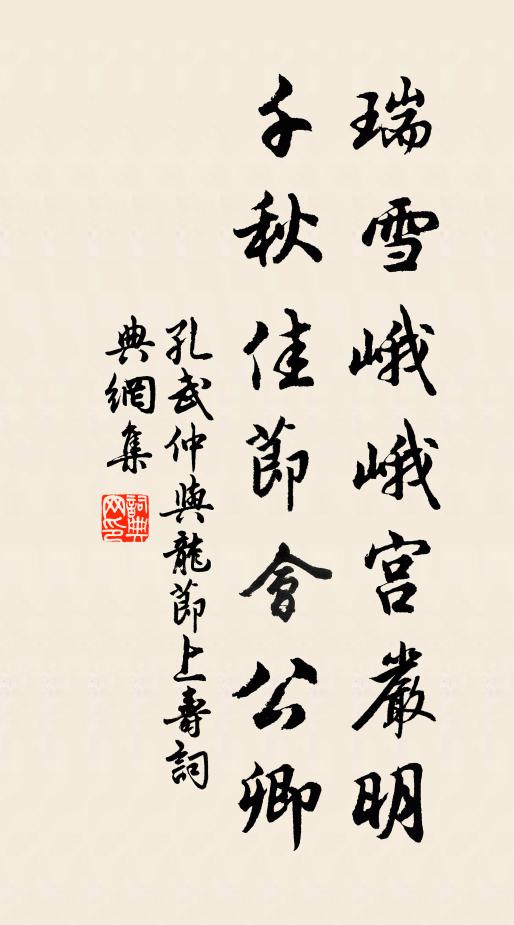 瑞雪峨峨宮嚴明
千秋佳節會公卿
孔武仲與龍節上壽詞
典網集
詞典網印